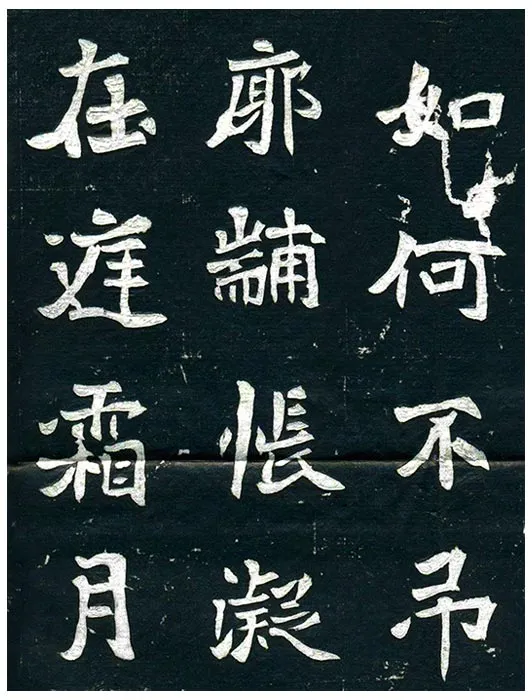 如何不吊
廓黼悵凝
在庭霜月